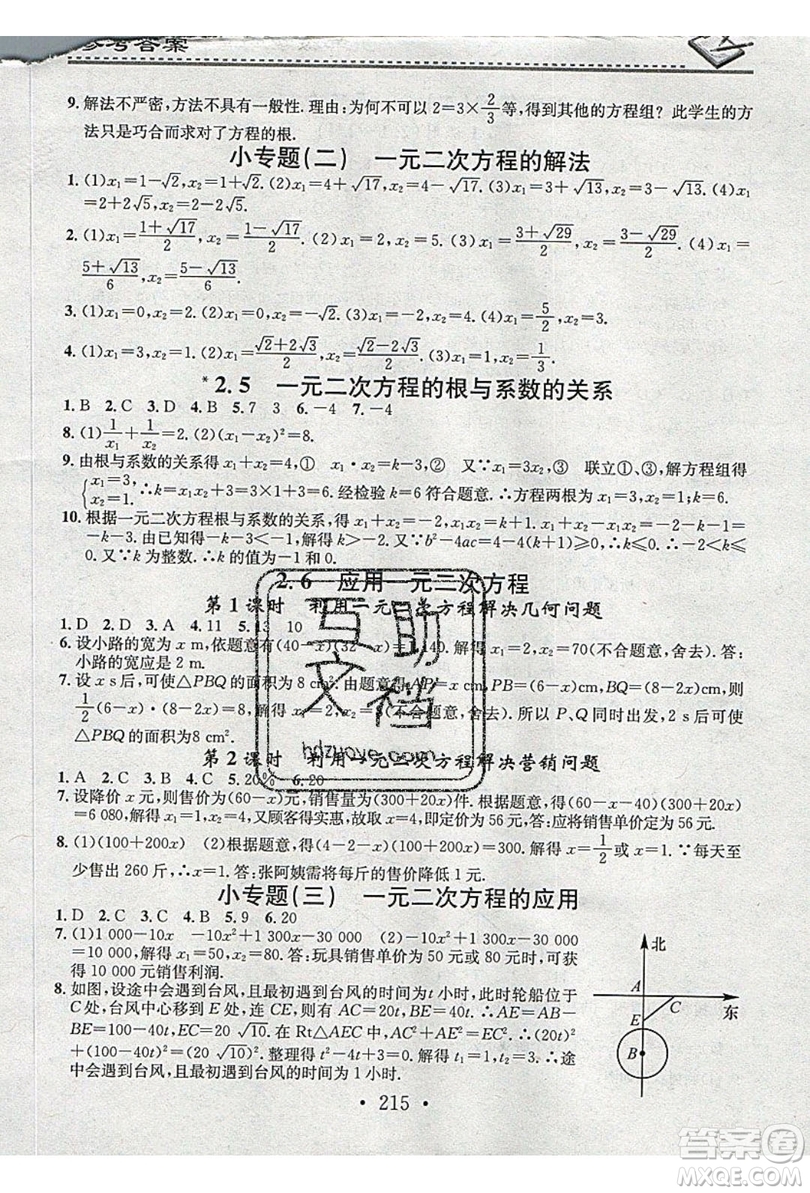 参考答案
9. 解法不严密,方法不具有一般性. 理由:为何不可以 2=3×2/3 等,得到其他的方程组? 此学生的方
法只是巧合而求对了方程的根.
小专题(二) 一元二次方程的解法
1. (1)x₁=1-√2,x₂=1+√2. (2)x₁=4+√17,x₂=4-√17. (3)x₁=3+√13,x₂=3-√13. (4)x₁=
2+2√5,x₂=2-2√5.
2. (1)x₁=(1+√17)/2,x₂=(1-√17)/2. (2)x₁=1,x₂=1/2. (3)x₁=(3+√29)/2,x₂=(3-√29)/2. (4)x₁=
(5+√13)/6,x₂=(5-√13)/6.
3. (1)x₁=0,x₂=2. (2)x₁=0,x₂=-√2. (3)x₁=-4,x₂=2. (4)x₁=5/2,x₂=3.
4. (1)x₁=3,x₂=1. (2)x₁=(√2+2√3)/2,x₂=(√2-2√3)/2. (3)x₁=1,x₂=1/3.
*2.5 一元二次方程的根与系数的关系
1. B 2. C 3. D 4. B 5. 7 3 6. -4 7. -4
8. (1)1/x₁+1/x₂=2. (2)(x₁-x₂)²=8.
9. 由根与系数的关系得 x₁+x₂=4,① x₁·x₂=k-3,② 又∵x₁=3x₂,③ 联立①、③,解方程组得
{x₁=3, x₂=1. ∴k=x₁x₂+3=3×1+3=6. 经检验 k=6 符合题意. ∴方程两根为 x₁=3,x₂=1.
10. 根据一元二次方程根与系数的关系,得 x₁+x₂=-2,x₁x₂=k+1. ∴x₁+x₂-x₁x₂=-2-(k+1)=
-k-3. 由已知得-k-3<-1,解得 k>-2. 又∵b²-4ac=4-4(k+1)≥0,解得 k≤0. ∴-2<k≤
0. 又∵k 为整数. ∴k 的值为-1 和 0.
2.6 应用一元二次方程
第 1 课时 利用一元二次方程解决几何问题
1. D 2. D 3. A 4. 11 5. 13 10
6. 设小路的宽为 x m,依题意有(40-x)(32-x)=1140. 解得 x₁=2,x₂=70(不合题意,舍去). 答:
小路的宽应是 2 m.
7. 设 x s后,可使△PBQ 的面积为 8 cm². 由题意得 AP=x cm,PB=(6-x)cm,BQ=2x cm,则
1/2(6-x)·(8-2x)=8. 解得 x₁=2,x₂=8(不合题意,舍去). 所以 P、Q 同时出发,2 s后可使
△PBQ 的面积为8 cm².
第 2 课时 利用一元二次方程解决营销问题
1. A 2. C 3. D 4. C 5. 20% 6. 20
7. 设降价 x 元,则售价为(60-x)元,销售量为(300+20x)件. 根据题意,得(60-x-40)(300+20x)
=6 080,解得 x₁=1,x₂=4,又顾客得实惠,故取 x=4,即定价为 56 元,答:应将销售单价定为 56 元.
8. (1)(100+200x) (2)根据题意,得(4-2-x)(100+200x)=300. 解得 x=1/2 或 x=1. ∵每天至
少售出 260 斤,∴x=1. 答:张阿姨需将每斤的售价降低 1 元.
小专题(三) 一元二次方程的应用
1. D 2. C 3. B 4. A 5. 9 6. 20
7. (1)1 000-10x -10x²+1 300x-30 000 (2)-10x²+1 300x-30 000
=10 000,解得x₁=50,x₂=80. 答:玩具销售单价为 50 元或 80 元时,可
获得 10 000 元销售利润.
8. 如图,设途中会遇到台风,且最初遇到台风的时间为t小时,此时轮船位于
C处,台风中心移到 E 处,连接 CE,则有 AC=20t,AE=AB-BE=100
-40t,EC=20 √10. 在 Rt△AEC 中,AC²+AE²=EC²,∴(20t)²+
(100-40t)²=(20 √10)². 整理得 t²-4t+3=0. 解得 t₁=1,t₂=3. ∴途
中会遇到台风,且最初遇到台风的时间为 1 小时.
北
A
C
东
E
B
· 215 ·
互助
文档
hdzuoye.com
答案圈
MXQE.COM